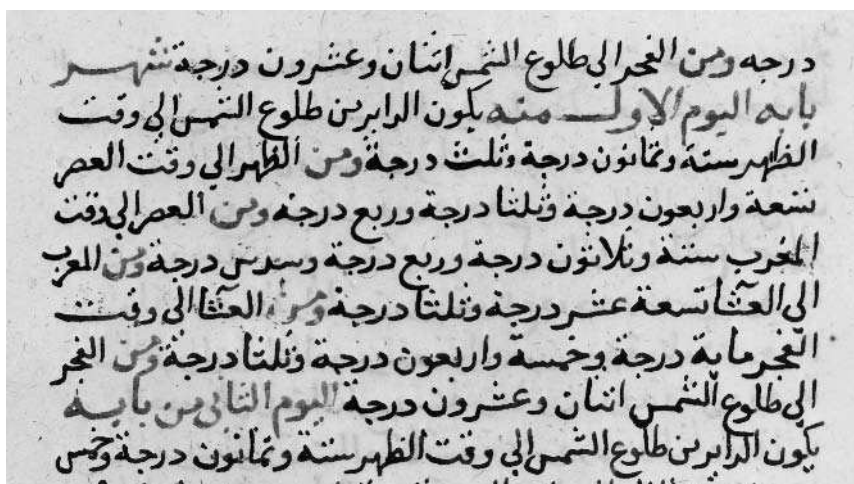 درجه ومن الفجر الي طلوع الشمس اثنان وعشرون درجة شهر
بابه اليوم الاول منه يكون الداير من طلوع الشمس الي وقت
الظهر ستة وثمانون درجة وثلث درجة ومن الظهر الي وقت العصر
تسعة واربعون درجة وثلثا درجة وربع درجه ومن العصر الي وقت
المغرب ستة وثلاثون درجة وربع درجة وسدس درجة ومن المغرب
الي العشا تسعة عشر درجة وثلثا درجة ومن العشا الي وقت
الفجر ماية درجة وخمسة واربعون درجة وثلثا درجة ومن الفجر
الي طلوع الشمس اثنان وعشرون درجة اليوم الثاني من بابه
يكون الداير من طلوع الشمس الي وقت الظهر ستة وثمانون درجة وخمس